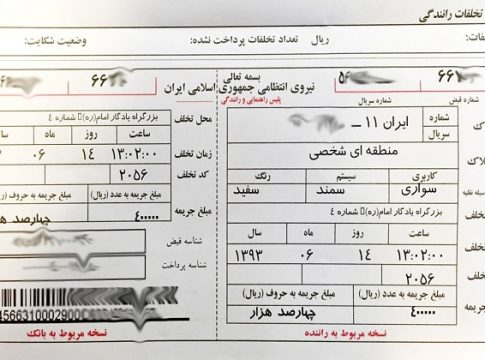 تخلفات رانندگی
لفات: ریال تعداد تخلفات پرداخت نشده: وضعیت شکایت:
بسمه تعالی
نیروی انتظامی جمهوری اسلامی ایران
پلیس راهنمایی و رانندگی
شماره قبض شماره سریال
شماره سریال ایران ۱۱ ــ
منطقه ای شخصی
کاربری سیستم رنگ
سواری سمند سفید
بزرگراه یادگار امام(ره) شماره ٤
ساعت روز ماه سال
۱۳:۰۲:۰۰ ۱٤ ۰۶ ۱۳۹۳
۲۰۵۶
مبلغ جریمه به عدد (ریال) مبلغ جریمه به حروف (ریال)
٤۰۰۰۰۰ چهارصد هزار
نسخه مربوط به راننده
محل تخلف بزرگراه یادگار امام(ره) شماره ٤
زمان تخلف ساعت روز ماه
۱۳:۰۲:۰۰ ۱٤ ۰۶
کد تخلف ۲۰۵۶
مبلغ جریمه مبلغ جریمه به عدد (ریال) مبلغ جریمه به حروف (ریال)
٤۰۰۰۰۰ چهارصد هزار
شناسه قبض
شناسه پرداخت
نسخه مربوط به بانک